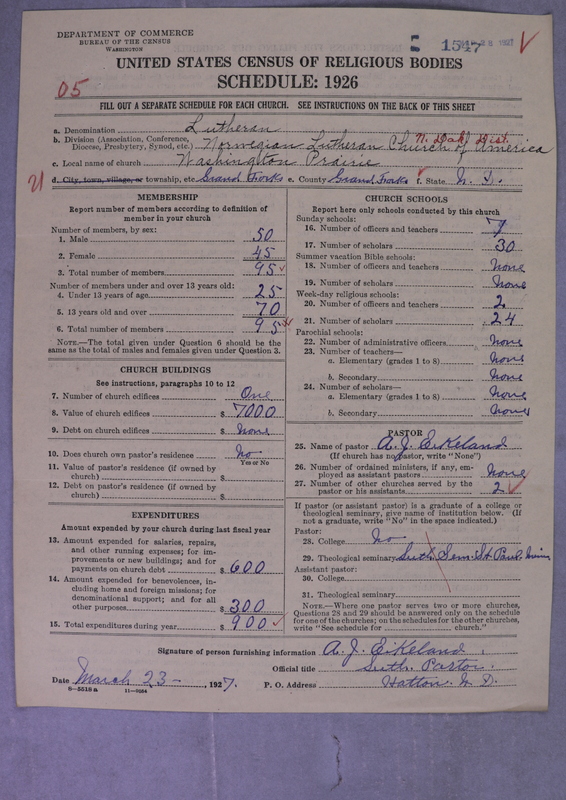 DEPARTMENT OF COMMERCE
BUREAU OF THE CENSUS
WASHINGTON
1547
UNITED STATES CENSUS OF RELIGIOUS BODIES
SCHEDULE: 1926
05
FILL OUT A SEPARATE SCHEDULE FOR EACH CHURCH. SEE INSTRUCTIONS ON THE BACK OF THIS SHEET
a. Denomination Lutheran
N. Dak. Dist.
b. Division (Association, Conference, Diocese, Presbytery, Synod, etc.) Norwegian Lutheran Church of America
c. Local name of church Washington Prairie
d. City, town, village, or township, etc. Grand Forks e. County Grand Forks f. State N. D.
MEMBERSHIP
Report number of members according to definition of
member in your church
Number of members, by sex:
1. Male 50
2. Female 45
3. Total number of members 95
Number of members under and over 13 years old:
4. Under 13 years of age 25
5. 13 years old and over 70
6. Total number of members 95
NOTE.—The total given under Question 6 should be the
same as the total of males and females given under Question 3.
CHURCH BUILDINGS
See instructions, paragraphs 10 to 12
7. Number of church edifices One
8. Value of church edifices $ 7000
9. Debt on church edifices $ None
10. Does church own pastor's residence No
Yes or No
11. Value of pastor's residence (if owned by
church) $
12. Debt on pastor's residence (if owned by
church) $
EXPENDITURES
Amount expended by your church during last fiscal year
13. Amount expended for salaries, repairs,
and other running expenses; for im-
provements or new buildings; and for
payments on church debt $ 600
14. Amount expended for benevolences, in-
cluding home and foreign missions; for
denominational support; and for all
other purposes $ 300
15. Total expenditures during year $ 900
CHURCH SCHOOLS
Report here only schools conducted by this church
Sunday schools:
16. Number of officers and teachers 7
17. Number of scholars 30
Summer vacation Bible schools:
18. Number of officers and teachers None
19. Number of scholars None
Week-day religious schools:
20. Number of officers and teachers 2
21. Number of scholars 24
Parochial schools:
22. Number of administrative officers None
23. Number of teachers—
a. Elementary (grades 1 to 8) None
b. Secondary None
24. Number of scholars—
a. Elementary (grades 1 to 8) None
b. Secondary None
PASTOR
25. Name of pastor A. J. Eikeland
(If church has no pastor, write "None")
26. Number of ordained ministers, if any, em-
ployed as assistant pastors None
27. Number of other churches served by the
pastor or his assistants 2
If pastor (or assistant pastor) is a graduate of a college or
theological seminary, give name of institution below. (If
not a graduate, write "No" in the space indicated.)
Pastor:
28. College No
29. Theological seminary Luth. Sem. St. Paul. Minn
Assistant pastor:
30. College
31. Theological seminary
NOTE.—Where one pastor serves two or more churches,
Questions 28 and 29 should be answered only on the schedule
for one of the churches; on the schedules for the other churches,
write "See schedule for church."
Signature of person furnishing information A. J. Eikeland
Official title Luth. Pastor.
Date March 23 —, 1927. P. O. Address Hatton. N. D.
8—5518 a 11—9064